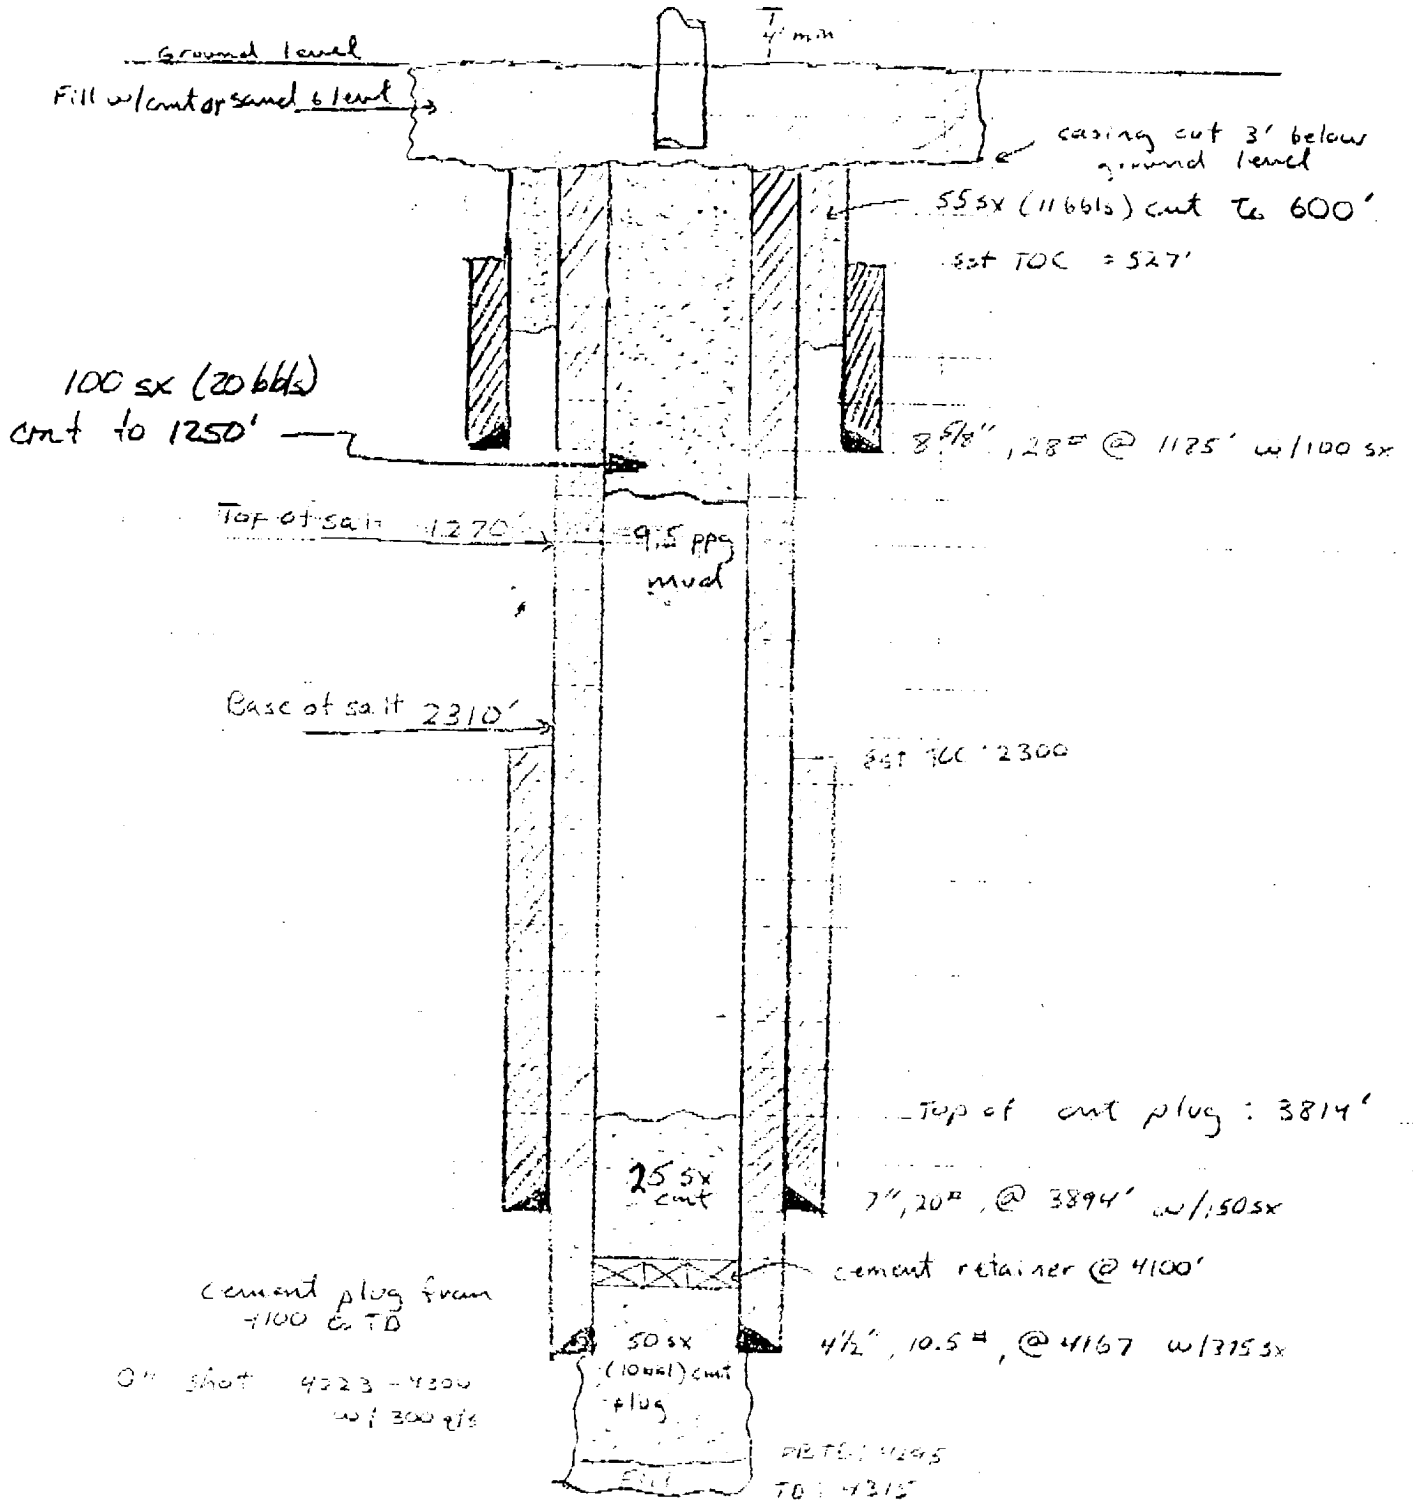 4' min
Ground level
Fill w/cmt or sand & level
casing cut 3' below
ground level
55 sx (11 bbls) cmt to 600'
Est TOC = 527'
100 sx (20 bbls)
cmt to 1250'
8 5/8", 28# @ 1185' w/100 sx
Top of salt 1270'
9.5 ppg
mud
Base of salt 2310'
Est TOC 2300
Top of cmt plug : 3814'
25 sx
cmt
7", 20#, @ 3894' w/150 sx
cement retainer @ 4100'
cement plug from
4100 to TD
50 sx
(10 bbl) cmt
plug
4 1/2", 10.5#, @ 4167 w/375 sx
shot
w/ 300 qts
PBTD: 4295
Fill
TD: 4315